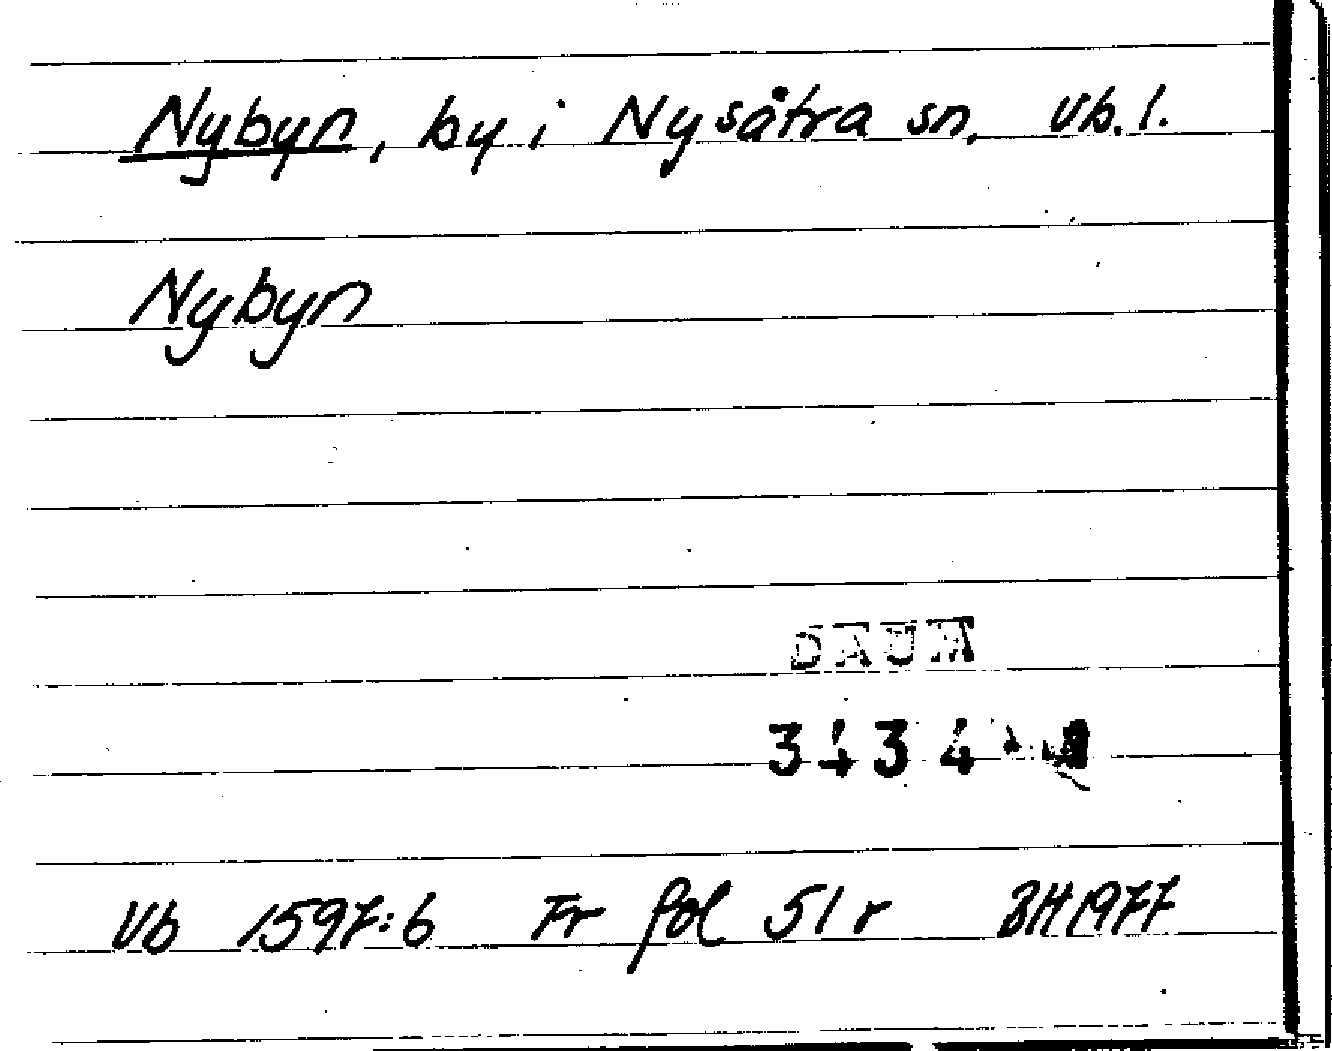 Nybyn, by i Nysåtra sn, Vb. l.
Nybyn
DAUM
3434
Vb 1597:6 Fr fol 51 r BH 1977